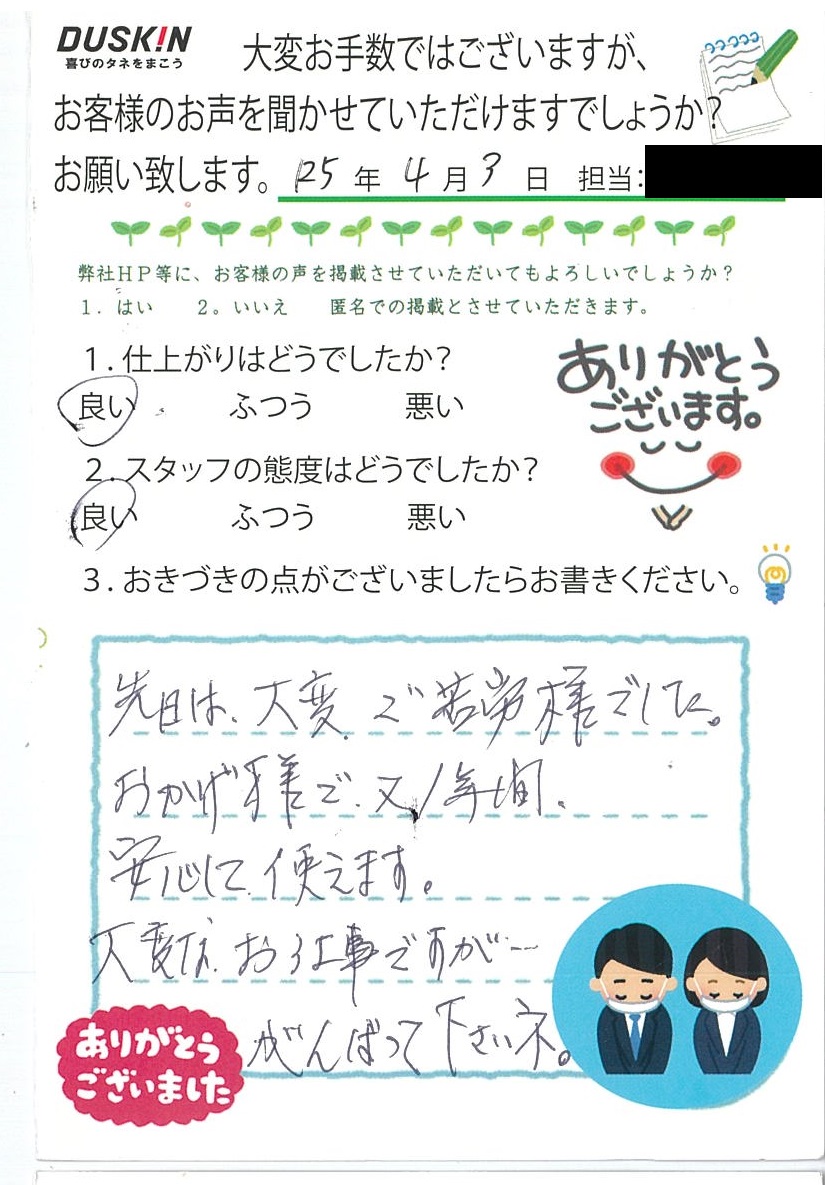 DUSKIN
喜びのタネをまこう
大変お手数ではございますが、
お客様のお声を聞かせていただけますでしょうか?
お願い致します。 R5 年 4 月 3 日 担当:
弊社HP等に、お客様の声を掲載させていただいてもよろしいでしょうか?
1. はい 2。いいえ 匿名での掲載とさせていただきます。
1.仕上がりはどうでしたか?
良い ふつう 悪い
ありがとう
ございます。
2.スタッフの態度はどうでしたか?
良い ふつう 悪い
3.おきづきの点がございましたらお書きください。
先日は、大変ご苦労様でした。
おかげ様で、又1年間、
安心して使えます。
大変な、お仕事ですが…
がんばって下さいネ。
ありがとう
ございました